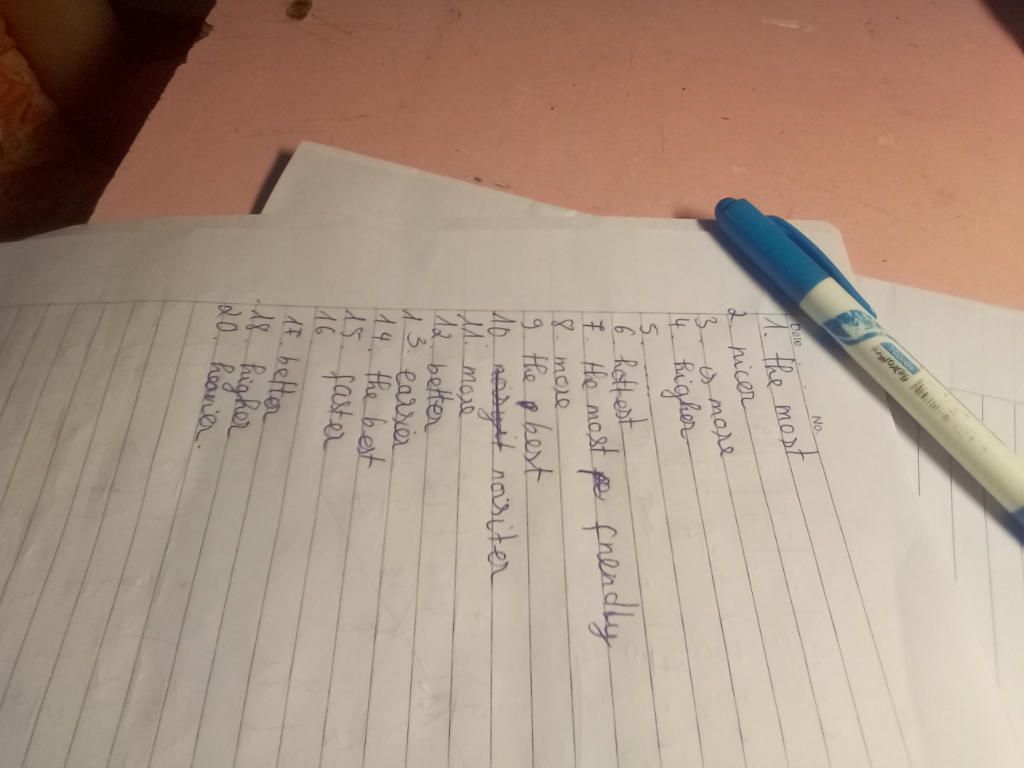 Date
No.
1. the most
2. nicer
3. is more
4. higher
5.
6. hottest
7. the most friendly
8. more
9 the best
10 nositer
11. more
12 better
13. earsier
14. the best
15. faster
16
17. better
18. higher
20. heavier.